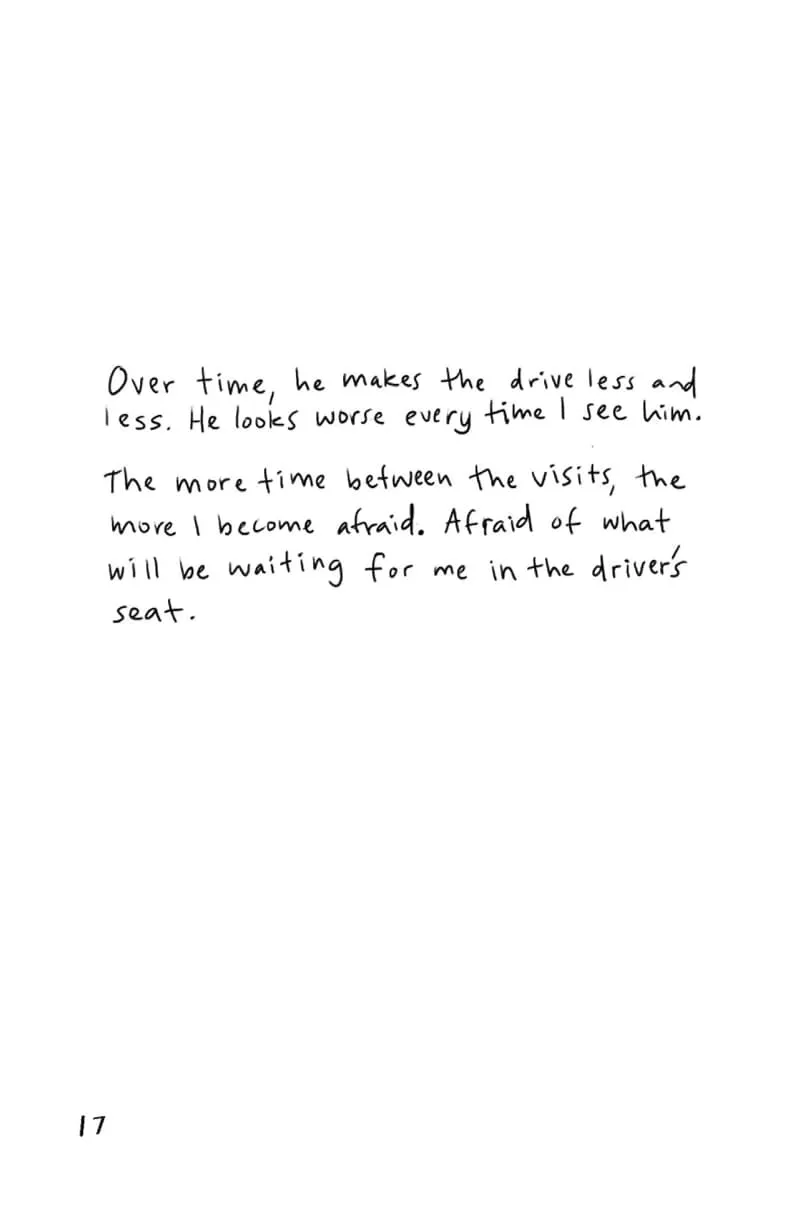 Over time, he makes the drive less and
less. He looks worse every time I see him.
The more time between the visits, the
more I become afraid. Afraid of what
will be waiting for me in the driver's
seat.
17